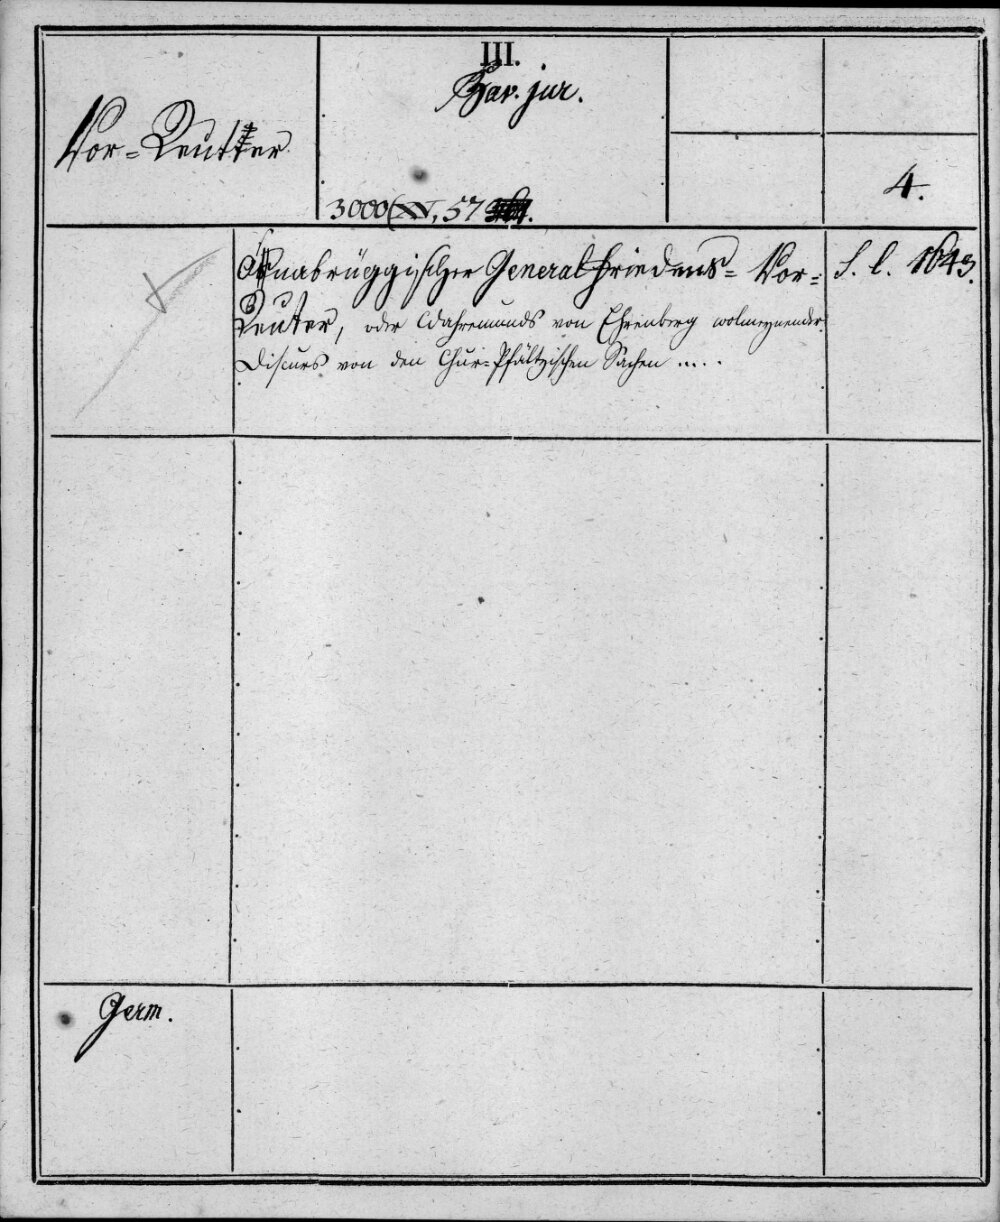 III.
Bav. jur.
Vor-Reutter
4.
3000(XV, 57
Osnabrüggischer General Friedens- Vor-
Reuter, oder Wahremunds von Ehrenberg wolmeynender
Discurs von den Chur-Pfältzischen Sachen .....
S. l. 1643.
Germ.